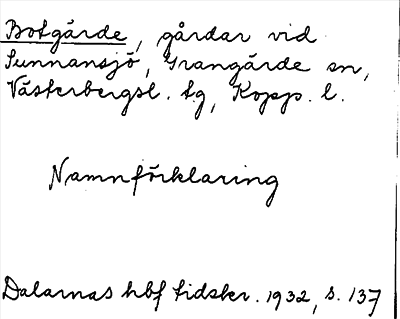 Botgärde, gårdar vid
Sunnansjö, Grangärde sn,
Västerbergsl. tg, Kopp. l.
Namnförklaring
Dalarnas hbf tidskr. 1932, s. 137